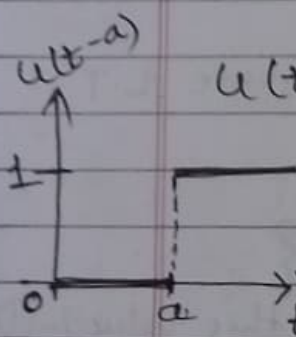 u(t-a)
u(t
1
0
a
t